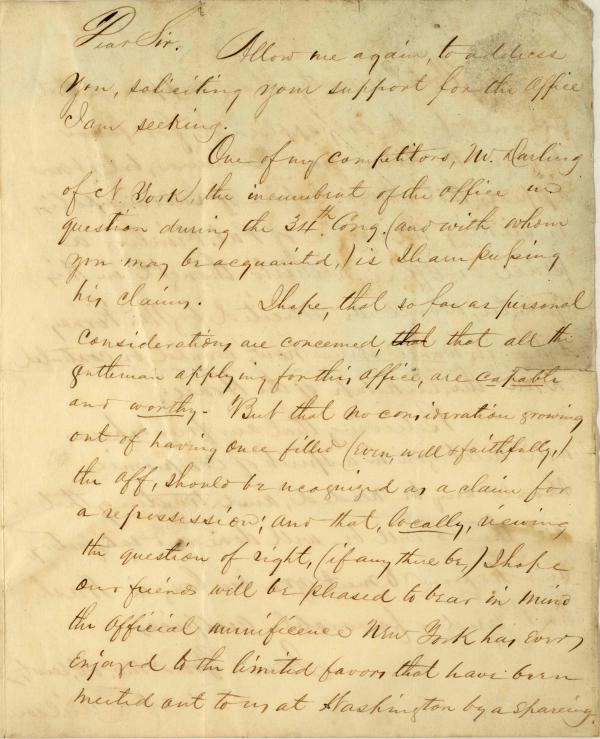 Dear Sir. Allow me again, to address
you, soliciting your support for the office
I am seeking.
One of my competitors, Mr. Darling
of N. York, the incumbent of the office in
question during the 34th Cong. (and with whom
you may be acquainted,) is sharp pushing
his claims. I hope, that so far as personal
considerations are concerned, that that all the
gentleman applying for this office, are capable
and worthy. But that no consideration growing
out of having once filled (even, well & faithfully,)
the off, should be recognized as a claim for
a repossession; and that, locally, viewing
the question of right, (if any there be,) I hope
our friends will be pleased to bear in mind
the official munificence New York has ever
enjoyed to the limited favors that have been
meted out to us at Washington by a spareing